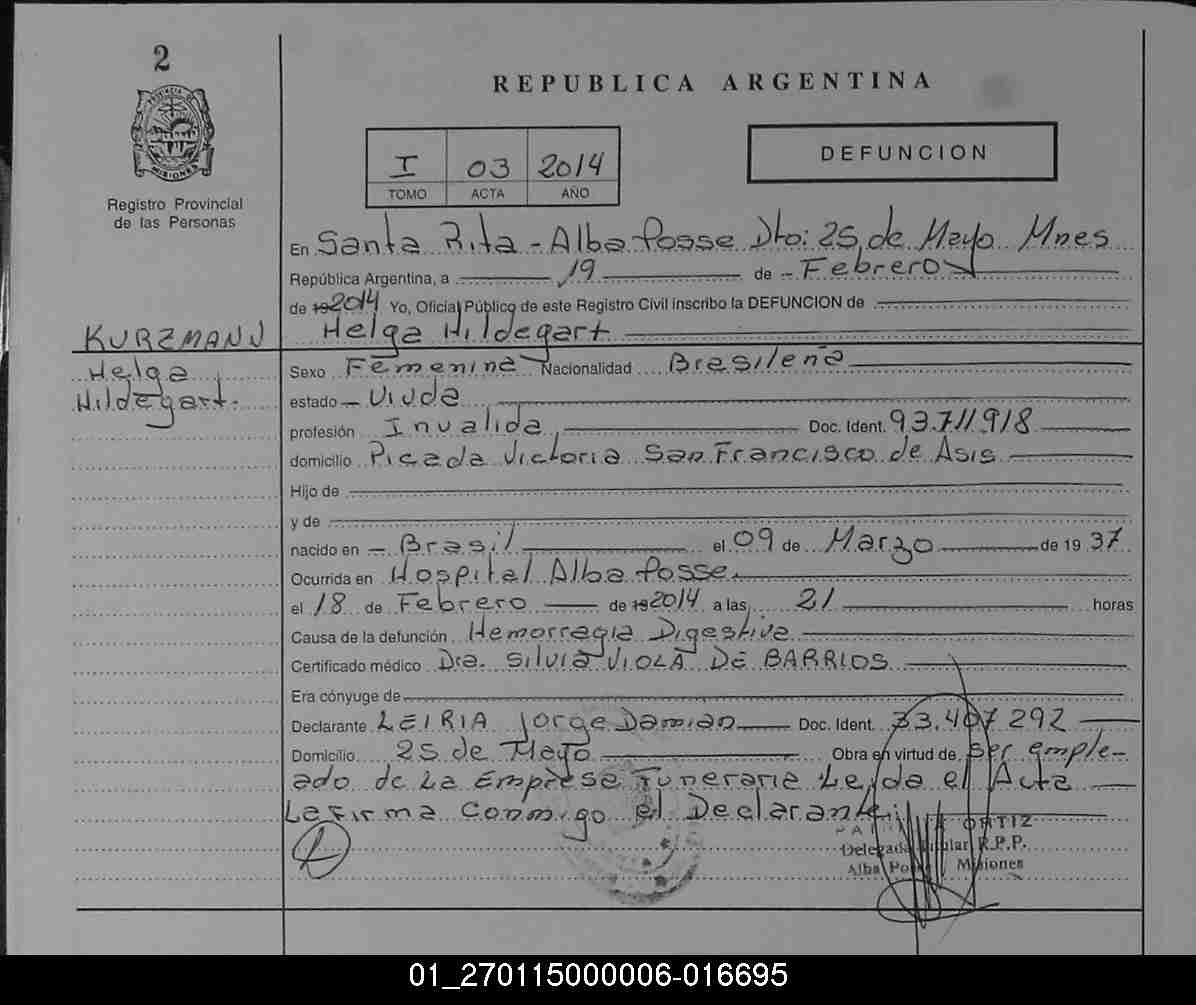 2
PROVINCIA DE
MISIONES
Registro Provincial
de las Personas
REPUBLICA ARGENTINA
I 03 2014
TOMO ACTA AÑO
DEFUNCION
En Santa Rita - Alba Posse Dto: 25 de Mayo Mnes
República Argentina, a 19 de Febrero
de 192014 Yo, Oficial Público de este Registro Civil inscribo la DEFUNCION de
KURZMANN Helga Hildegart
Helga
Hildegart.
Sexo Femenina Nacionalidad Brasileña
estado Viuda
profesión Invalida Doc. Ident. 93.711918
domicilio Picada Victoria San Francisco de Asis
Hijo de
y de
nacido en Brasil el 09 de Marzo de 1937
Ocurrida en Hospital Alba Posse.
el 18 de Febrero de 192014 a las 21 horas
Causa de la defunción Hemorragia Digestiva
Certificado médico Dra. SILVIA VIOLA DE BARRIOS
Era cónyuge de
Declarante LEIRIA Jorge Damian Doc. Ident. 33.407 292
Domicilio 25 de Mayo Obra en virtud de ser emple-
ado de La Emprese Funeraria Leida el Acta
La Firma Conmigo el Declarante.
ORTIZ
Delegada Titular R.P.P.
Alba Posse Misiones
01_270115000006-016695